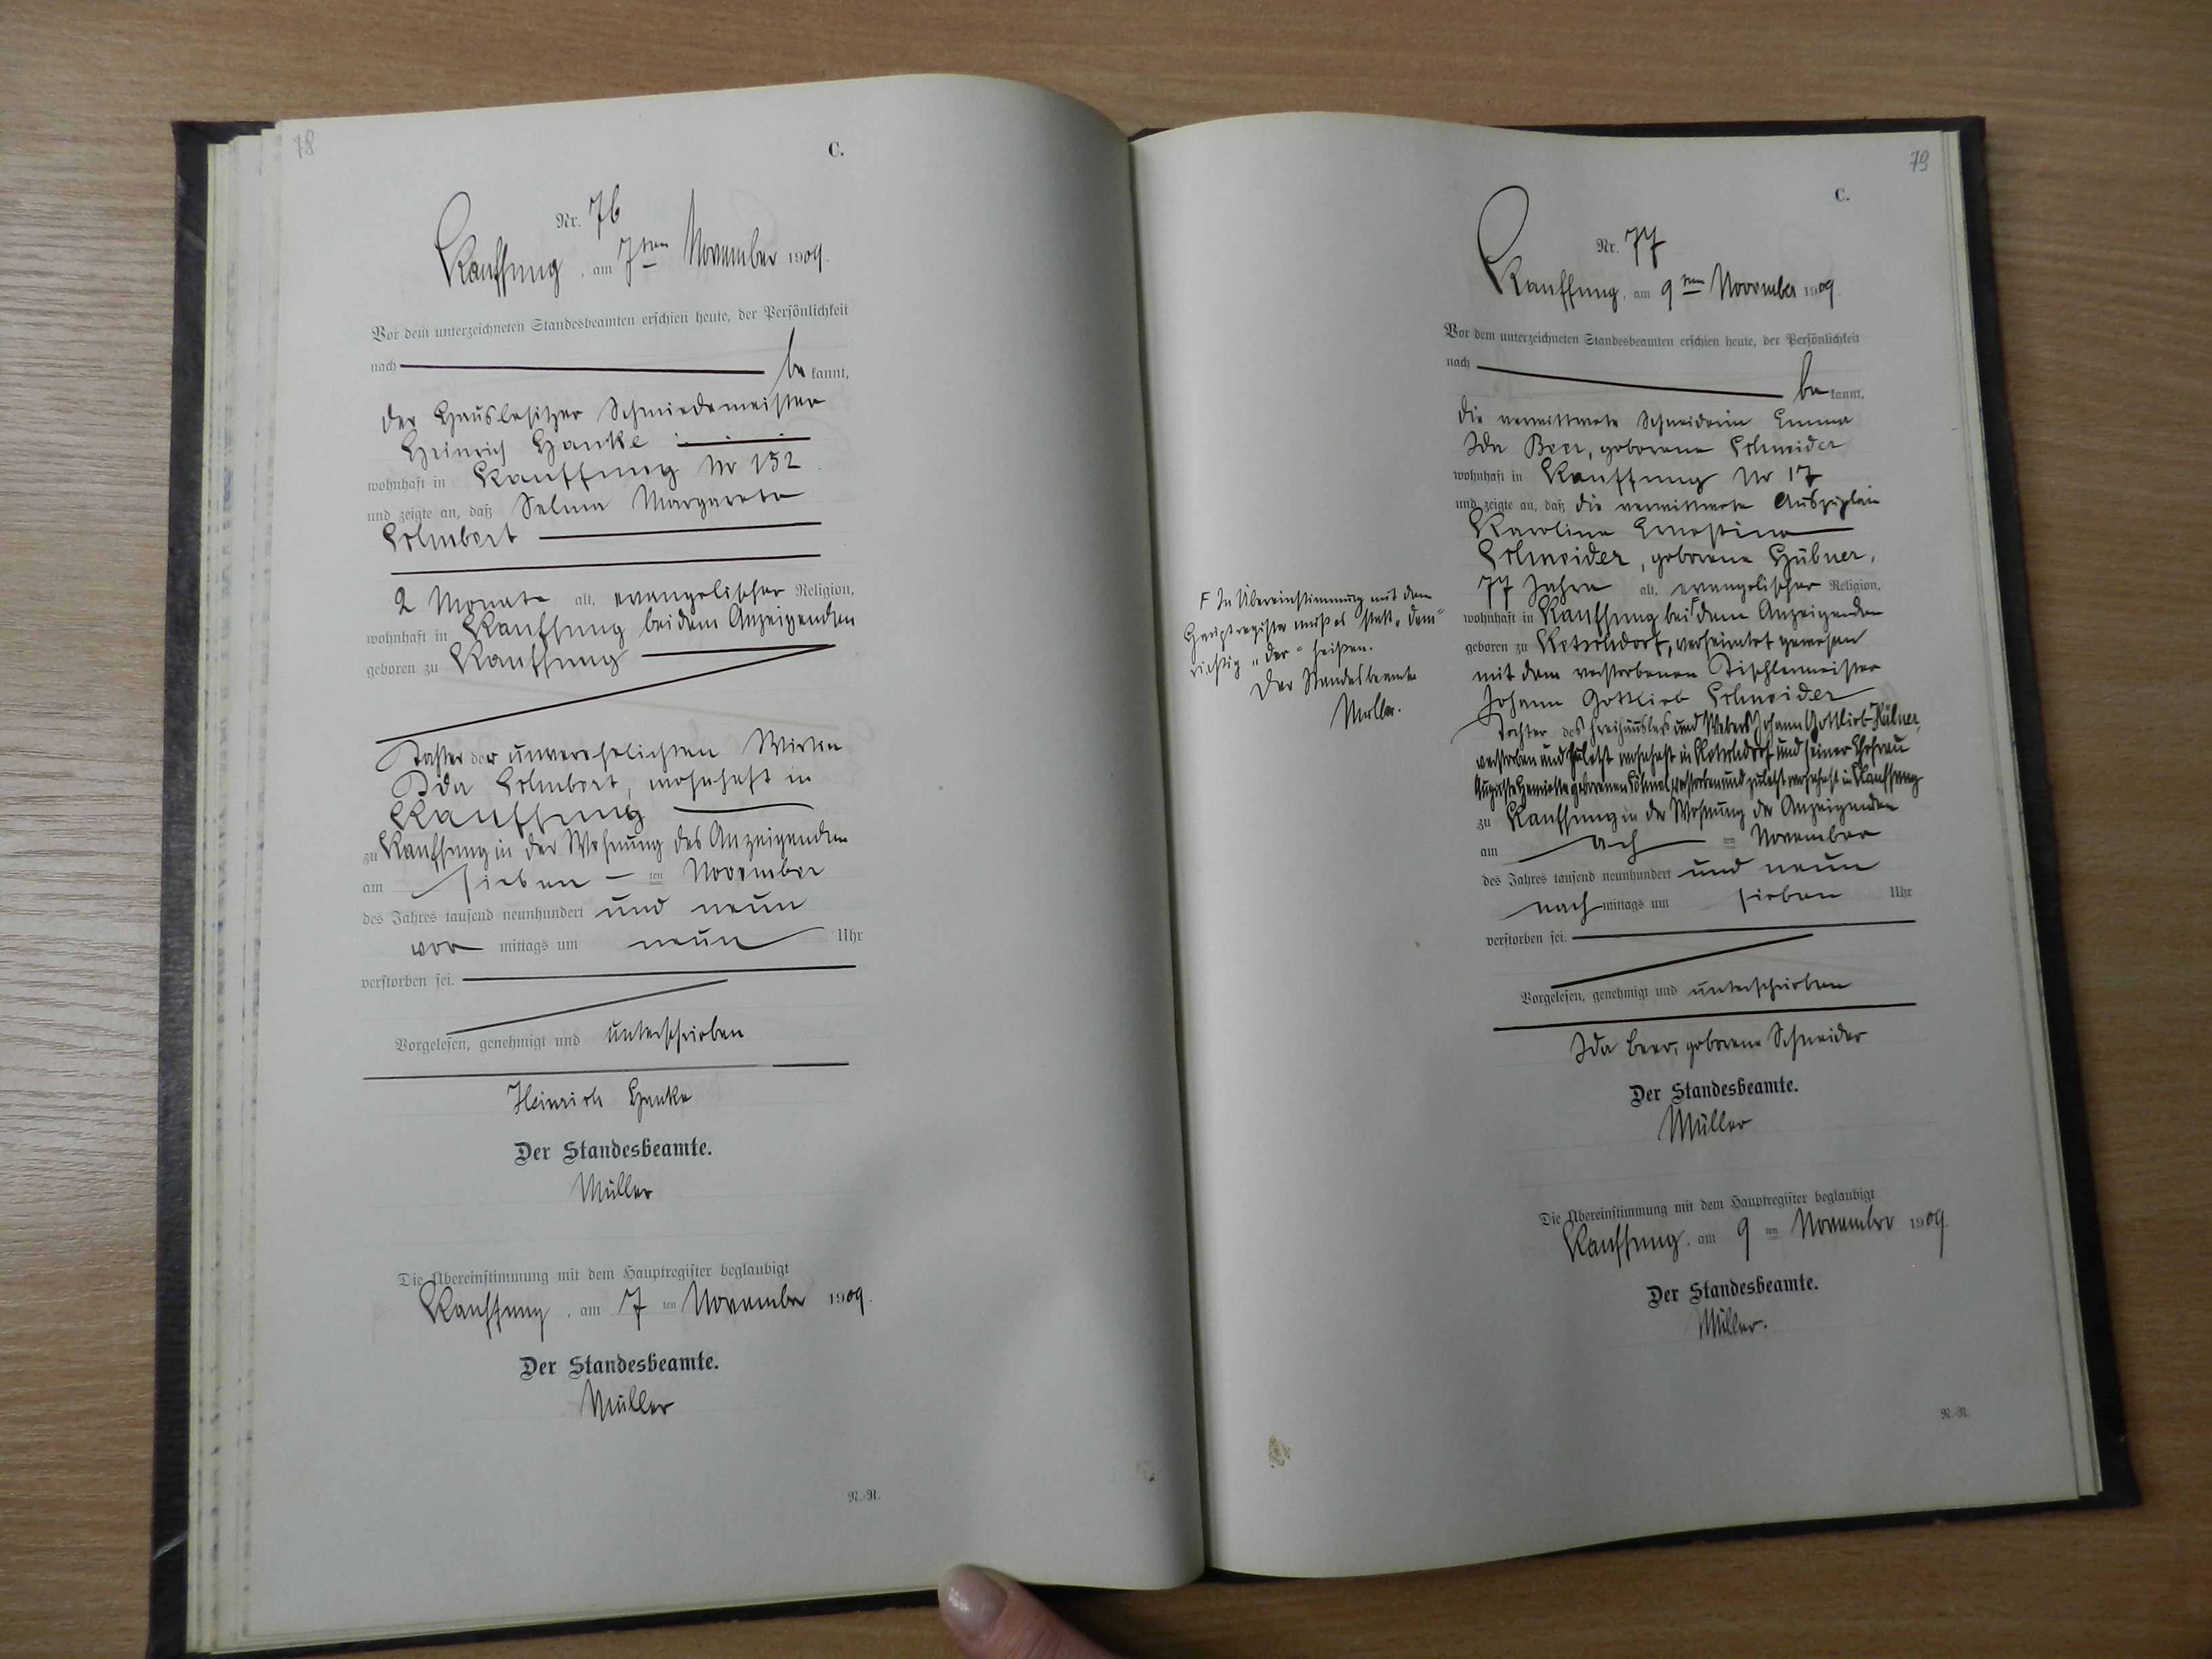 78
C.
Nr. 76
Kauffung, am 7ten November 1909.
Vor dem unterzeichneten Standesbeamten erschien heute, der Persönlichkeit
nach be kannt,
der Hausbesitzer Schmiedemeister
Heinrich Hanke
wohnhaft in Kauffung Nr 152
und zeigte an, daß Selma Margarete
2 Monate alt, evangelischer Religion,
wohnhaft in Kauffung bei dem Anzeigenden
geboren zu Kauffung
Tochter der unverehelichten Wirtin
Ida wohnhaft in
Kauffung
zu Kauffung in der Wohnung des Anzeigenden
am sieben ten November
des Jahres tausend neunhundert und neun
vor mittags um neun Uhr
verstorben sei.
Vorgelesen, genehmigt und unterschrieben
Heinrich Hanke
Der Standesbeamte.
Müller
Die Übereinstimmung mit dem Hauptregister beglaubigt
Kauffung, am 7 ten November 1909.
Der Standesbeamte.
Müller
N.-R.
79
C.
Nr. 77
Kauffung, am 9ten November 1909.
Vor dem unterzeichneten Standesbeamten erschien heute, der Persönlichkeit
nach be kannt,
die verwittwete Schneiderin Emma
Ida Beer, geborene Schneider
wohnhaft in Kauffung Nr 17
und zeigte an, daß die verwittwete
Karoline Ernestine
Schneider, geborene Hübner,
77 Jahre alt, evangelischer Religion,
wohnhaft in Kauffung bei F dem Anzeigenden
geboren zu Ketschdorf, verheiratet gewesen
mit dem verstorbenen Tischlermeister
Johann Gottlieb Schneider
Tochter des Freihäuslers und Webers Johann Gottlieb Hübner,
verstorben und zuletzt wohnhaft in Ketschdorf und seiner Ehefrau
Auguste geborenen verstorben und zuletzt wohnhaft in Kauffung
zu Kauffung in der Wohnung der Anzeigenden
am ach ten November
des Jahres tausend neunhundert und neun
nach mittags um sieben Uhr
verstorben sei.
Vorgelesen, genehmigt und unterschrieben
Ida Beer, geborene Schneider
Der Standesbeamte.
Müller
Die Übereinstimmung mit dem Hauptregister beglaubigt
Kauffung, am 9 ten November 1909.
Der Standesbeamte.
Müller.
N.-R.
F In Übereinstimmung mit dem
Hauptregister muß es statt „dem"
richtig „der" heißen.
Der Standesbeamte
Müller.